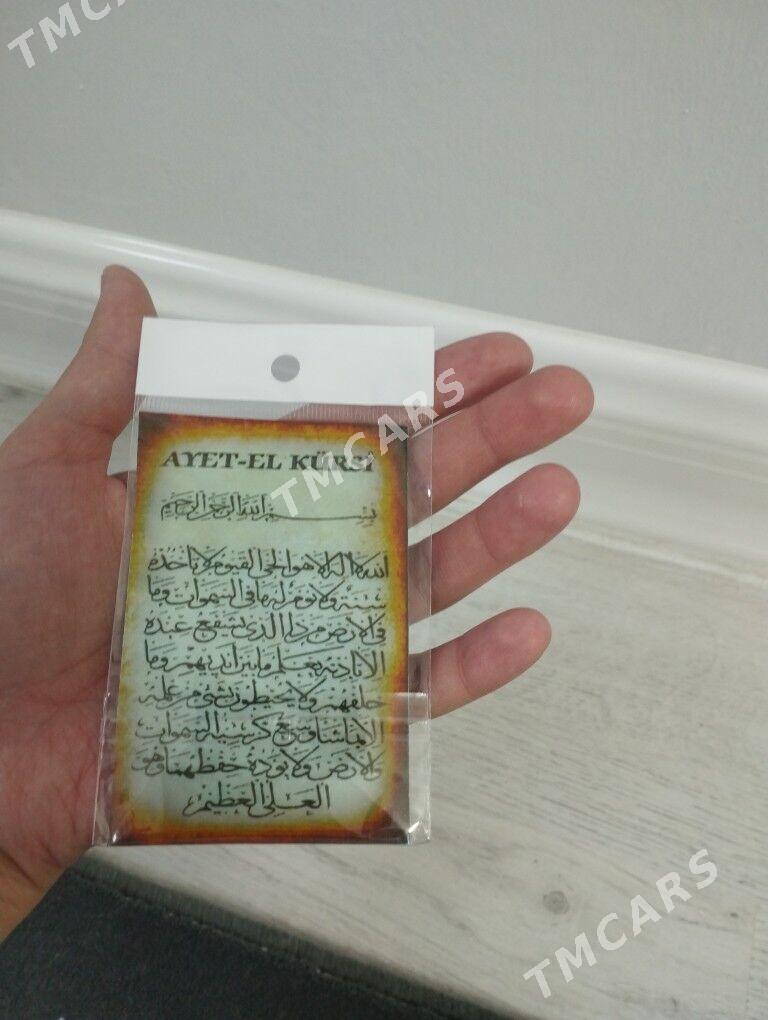 TMCARS
AYET-EL KÜRSÎ
بسم الله الرحمن الرحيم
TMCARS
الله لا اله الا هو الحي القيوم لا تأخذه
سنة ولا نوم له ما في السموات وما
في الارض من ذا الذي يشفع عنده
الا باذنه يعلم ما بين ايديهم وما
خلفهم ولا يحيطون بشئ من علمه
الا بما شاء وسع كرسيه السموات
والارض ولا يؤده حفظهما وهو
العلي العظيم
TMCARS